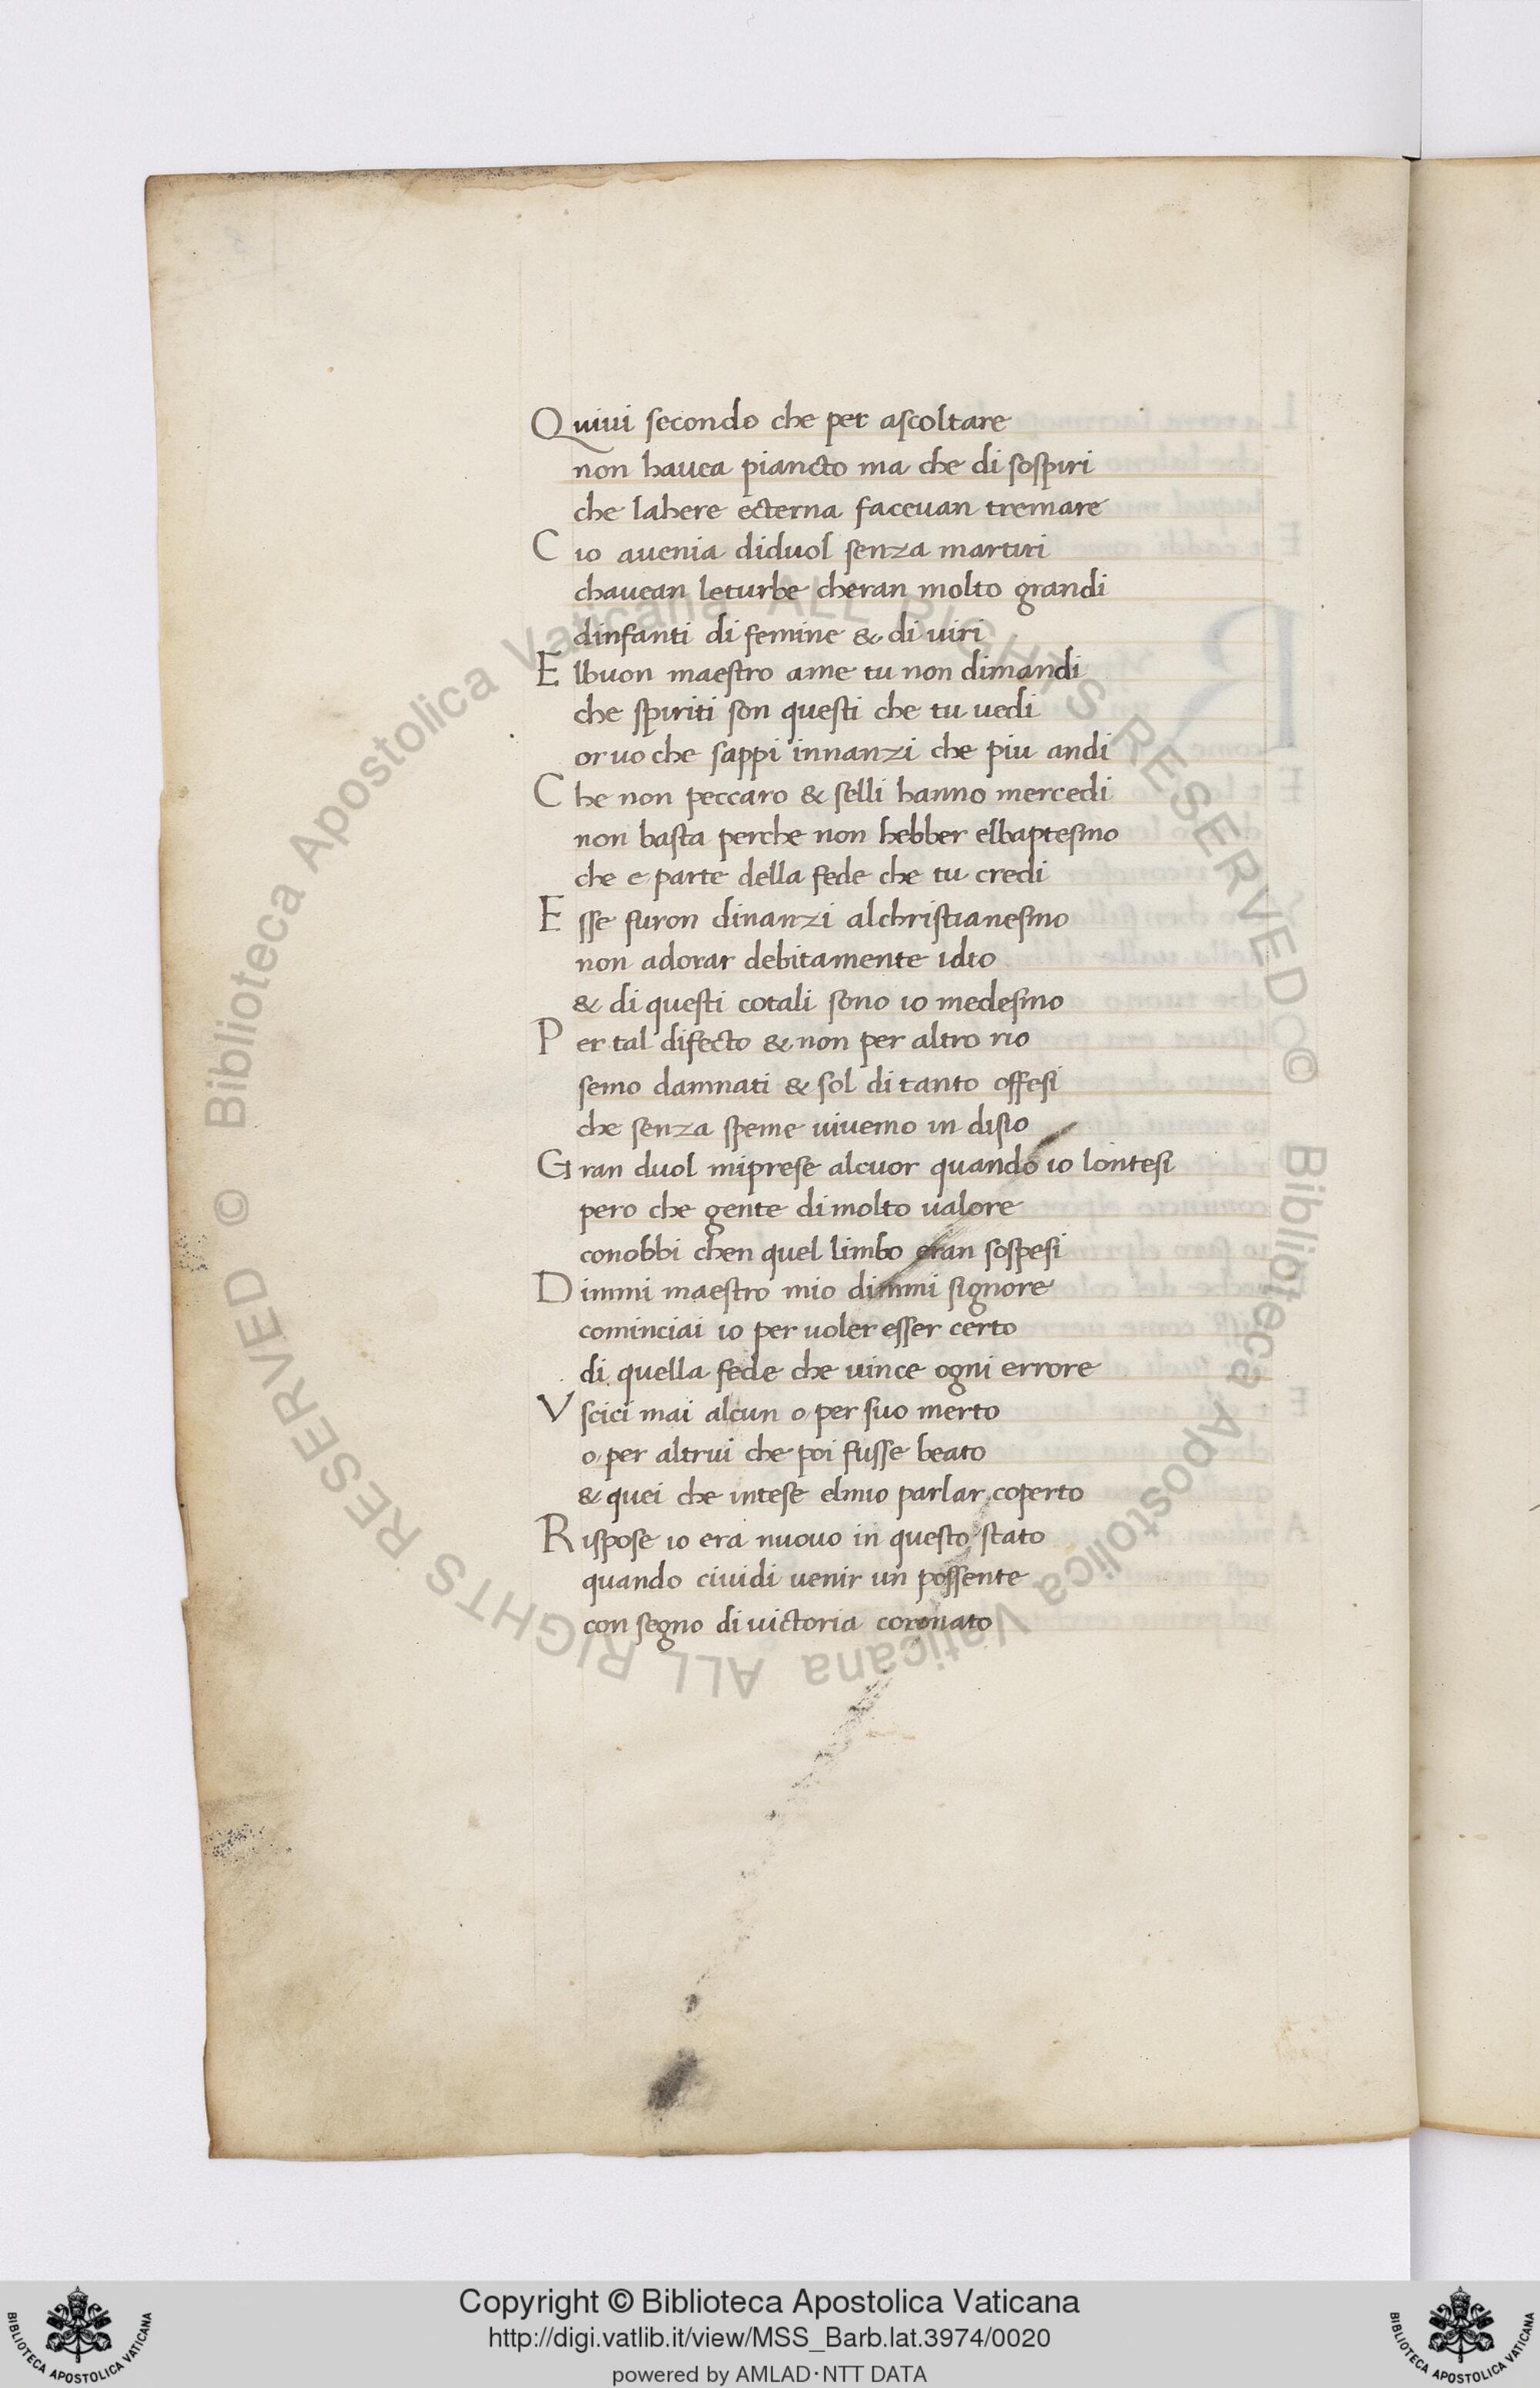 Quiui secondo che per ascoltare
non hauea piancto ma che di sospiri
che lahere ecterna faceuan tremare
Cio auenia diduol senza martiri
chauean leturbe cheran molto grandi
dinfanti di femine & di uiri
Elbuon maestro ame tu non dimandi
che spiriti son questi che tu uedi
or uo che sappi innanzi che piu andi
Che non peccaro & selli hanno mercedi
non basta perche non hebber elbaptesmo
che e parte della fede che tu credi
Esse furon dinanzi alchristianesmo
non adorar debitamente idio
& di questi cotali sono io medesmo
Per tal difecto & non per altro rio
semo damnati & sol di tanto offesi
che senza speme uiuemo in disio
Gran duol miprese alcuor quando io lontesi
pero che gente di molto ualore
conobbi chen quel limbo eran sospesi
Dimmi maestro mio dimmi signore
cominciai io per uoler esser certo
di quella fede che uince ogni errore
Vscici mai alcun o per suo merto
o per altrui che poi fusse beato
& quei che intese elmio parlar coperto
Rispose io era nuouo in questo stato
quando ciuidi uenir un possente
con segno di victoria coronato
© Biblioteca Apostolica Vaticana ALL RIGHTS RESERVED © Biblioteca Apostolica Vaticana ALL RIGHTS RESERVED
BIBLIOTECA APOSTOLICA VATICANA
Copyright © Biblioteca Apostolica Vaticana
http://digi.vatlib.it/view/MSS_Barb.lat.3974/0020
powered by AMLAD·NTT DATA
BIBLIOTECA APOSTOLICA VATICANA